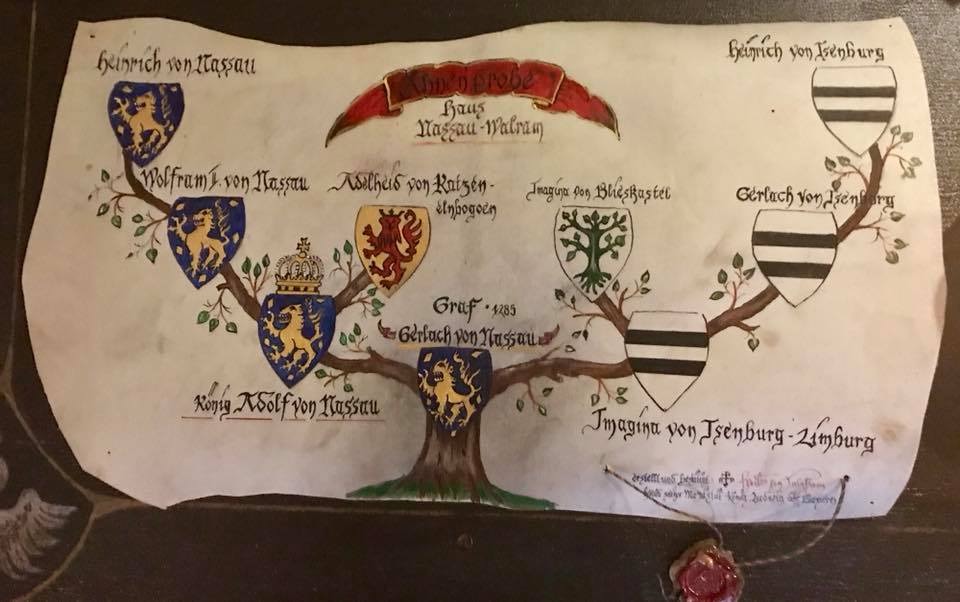 Heinrich von Nassau
Heinrich von Isenburg
Ahnenprobe
Haus
Nassau-Walram
Wolfram II. von Nassau
Adelheid von Katzen-
elnbogen
Imagina von Blieskastel
Gerlach von Isenburg
Graf · 1285
Gerlach von Nassau
König Adolf von Nassau
Imagina von Isenburg-Limburg
erstellt und
König Ludwig